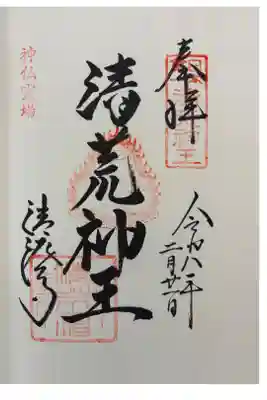 奉拝
令和八年
二月廿一日
清荒神王
清澄寺
神仏霊場